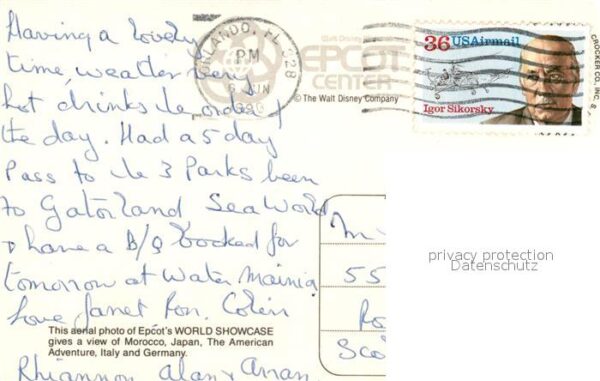 Having a lovely
time, weather very
hot drinks the order of
the day. Had a 5 day
Pass to the 3 Parks been
to Gatorland, Sea World
& have a B/Q booked for
tomorrow at Water Mainia
Love Janet Ron. Colin
Rhiannon Alan &
ORLANDO, FL 328
PM
6 JUN
1990
Walt Disney
EPCOT
CENTER
© The Walt Disney Company
36 USAirmail
Igor Sikorsky
CROCKER CO., INC. S
55
Sco
privacy protection
Datenschutz
This aerial photo of Epcot's WORLD SHOWCASE
gives a view of Morocco, Japan, The American
Adventure, Italy and Germany.